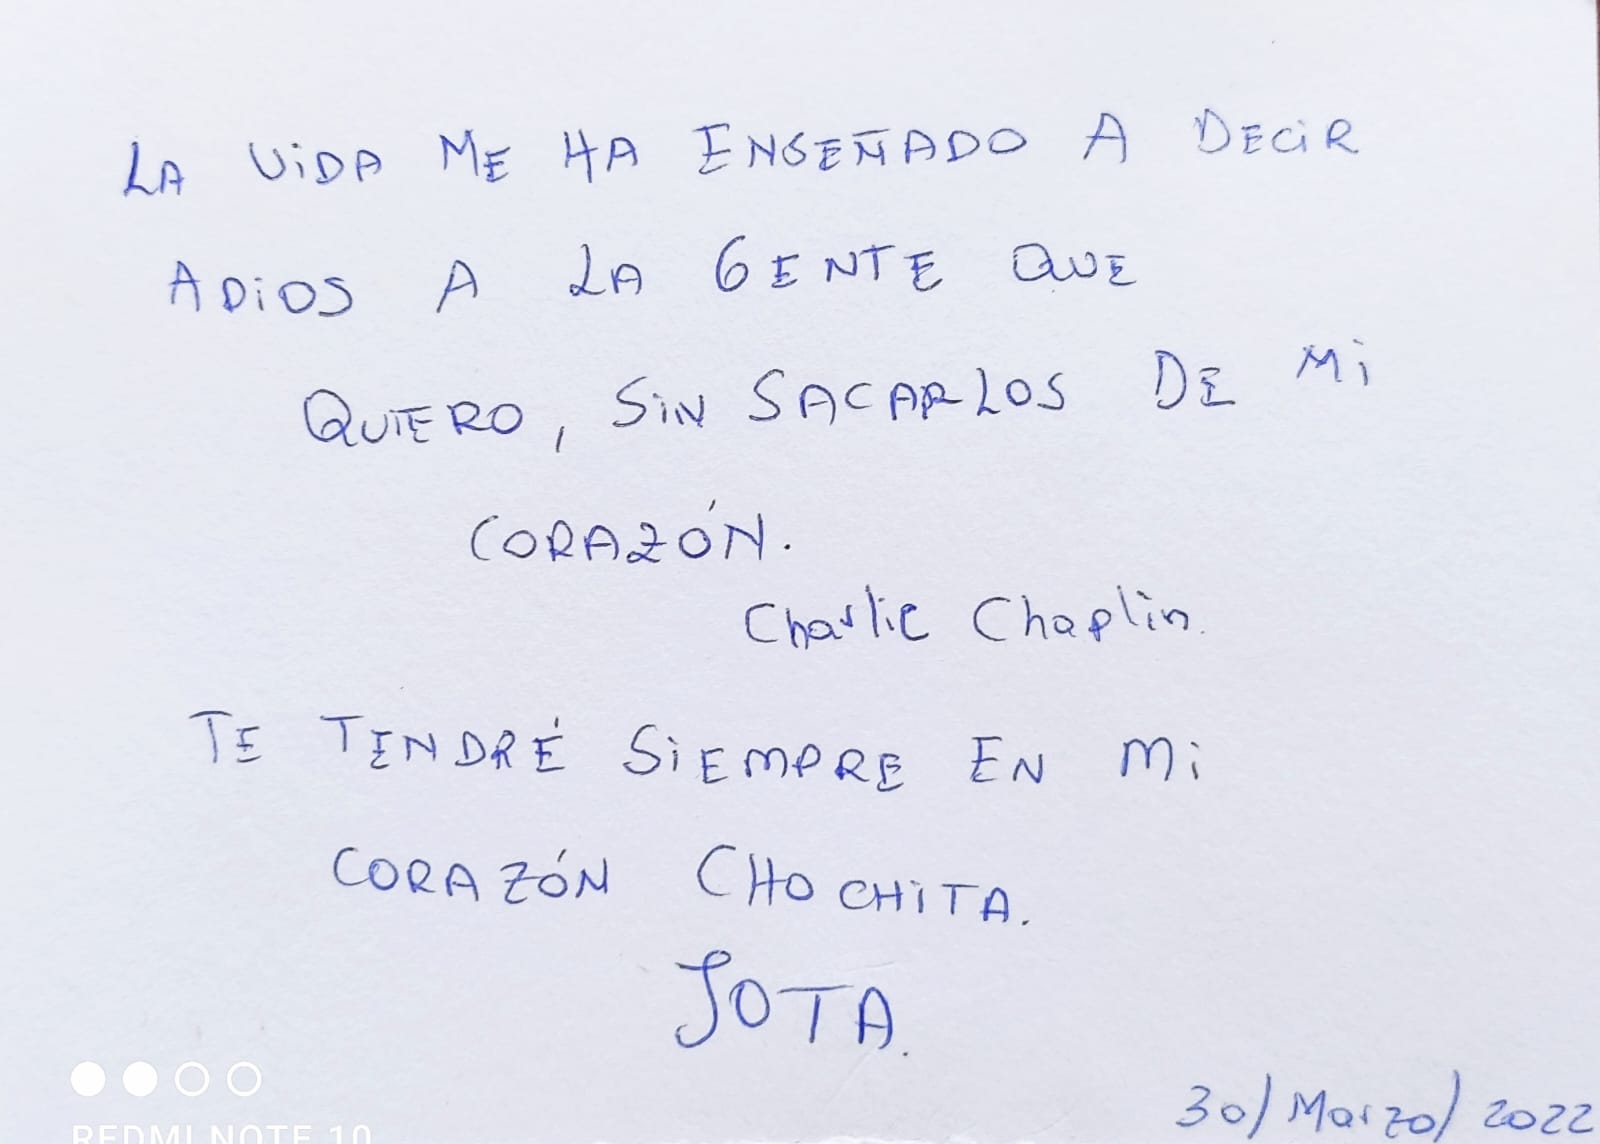 LA ViDA ME HA ENSEÑADO A DECiR
ADiOS A LA GENTE QUE
QUIERO, SiN SACARLOS DE Mi
CORAZÓN.
Charlie Chaplin.
TE TENDRÉ SiEMPRE EN Mi
CORAZÓN CHOCHiTA.
JOTA.
30/Marzo/2022
REDMI NOTE 10